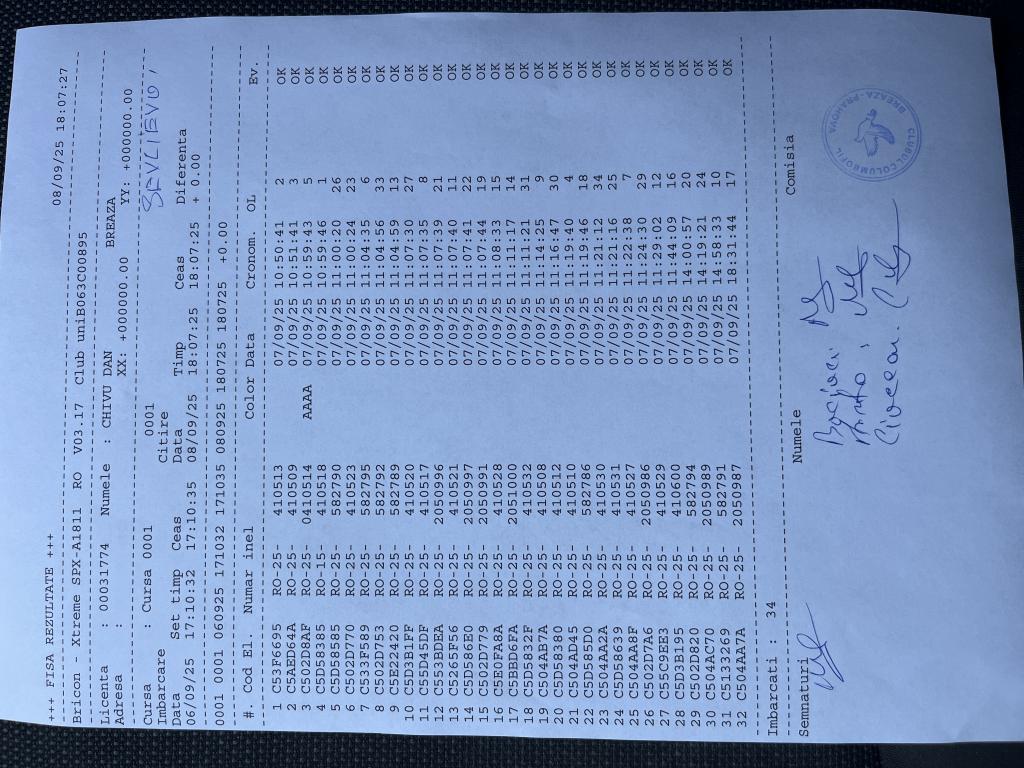 +++ FISA REZULTATE +++ 08/09/25 18:07:27
Bricon - Xtreme SPX-A1811 RO V03.17 Club uniB063C00895
Licenta : 00031774 Numele : CHIVU DAN
Adresa : XX: +000000.00 BREAZA YY: +000000.00
Cursa : Cursa 0001 0001 SEVLIEVO,
Imbarcare Citire
Data Set timp Ceas Data Timp Ceas Diferenta
06/09/25 17:10:32 17:10:35 08/09/25 18:07:25 18:07:25 + 0.00
0001 0001 060925 171032 171035 080925 180725 180725 +0.00
#. Cod El. Numar inel Color Data Cronom. OL Ev.
1 C53F6695 RO-25- 410513 07/09/25 10:50:41 2 OK
2 C5AED64A RO-25- 410509 07/09/25 10:51:41 3 OK
3 C502D8AF RO-25- 0410514 AAAA 07/09/25 10:59:43 5 OK
4 C5D58385 RO-15- 410518 07/09/25 10:59:46 1 OK
5 C5D58585 RO-25- 582790 07/09/25 11:00:20 26 OK
6 C502D770 RO-25- 410523 07/09/25 11:00:24 23 OK
7 C533F589 RO-25- 582795 07/09/25 11:04:35 6 OK
8 C502D753 RO-25- 582792 07/09/25 11:04:56 33 OK
9 C5E22420 RO-25- 582789 07/09/25 11:04:59 13 OK
10 C5D3B1FF RO-25- 410520 07/09/25 11:07:30 27 OK
11 C55D45DF RO-25- 410517 07/09/25 11:07:35 8 OK
12 C553BDEA RO-25- 2050996 07/09/25 11:07:39 21 OK
13 C5265F56 RO-25- 410521 07/09/25 11:07:40 11 OK
14 C5D586E0 RO-25- 2050997 07/09/25 11:07:41 22 OK
15 C502D779 RO-25- 2050991 07/09/25 11:07:44 19 OK
16 C5E0FA8A RO-25- 410528 07/09/25 11:08:33 15 OK
17 C5BBD6FA RO-25- 2051000 07/09/25 11:11:17 14 OK
18 C5D5832F RO-25- 410532 07/09/25 11:11:21 31 OK
19 C504AB7A RO-25- 410508 07/09/25 11:14:25 9 OK
20 C5D58380 RO-25- 410512 07/09/25 11:16:47 30 OK
21 C504AD45 RO-25- 410510 07/09/25 11:19:40 4 OK
22 C5D585D0 RO-25- 582786 07/09/25 11:19:46 18 OK
23 C504AA2A RO-25- 410530 07/09/25 11:21:12 34 OK
24 C5D58639 RO-25- 410531 07/09/25 11:21:16 25 OK
25 C504AA8F RO-25- 410527 07/09/25 11:22:38 7 OK
26 C502D7A6 RO-25- 2050986 07/09/25 11:24:30 29 OK
27 C55C9EE3 RO-25- 410529 07/09/25 11:29:02 12 OK
28 C5D3B195 RO-25- 410600 07/09/25 11:44:09 16 OK
29 C502D820 RO-25- 582794 07/09/25 14:00:57 20 OK
30 C504AC70 RO-25- 2050989 07/09/25 14:19:21 24 OK
31 C5133269 RO-25- 582791 07/09/25 14:58:33 10 OK
32 C504AA7A RO-25- 2050987 07/09/25 18:31:44 17 OK
Imbarcati : 34
Semnaturi Numele Comisia
CLUBUL COLUMBOFIL
BREAZA - PRAHOVA